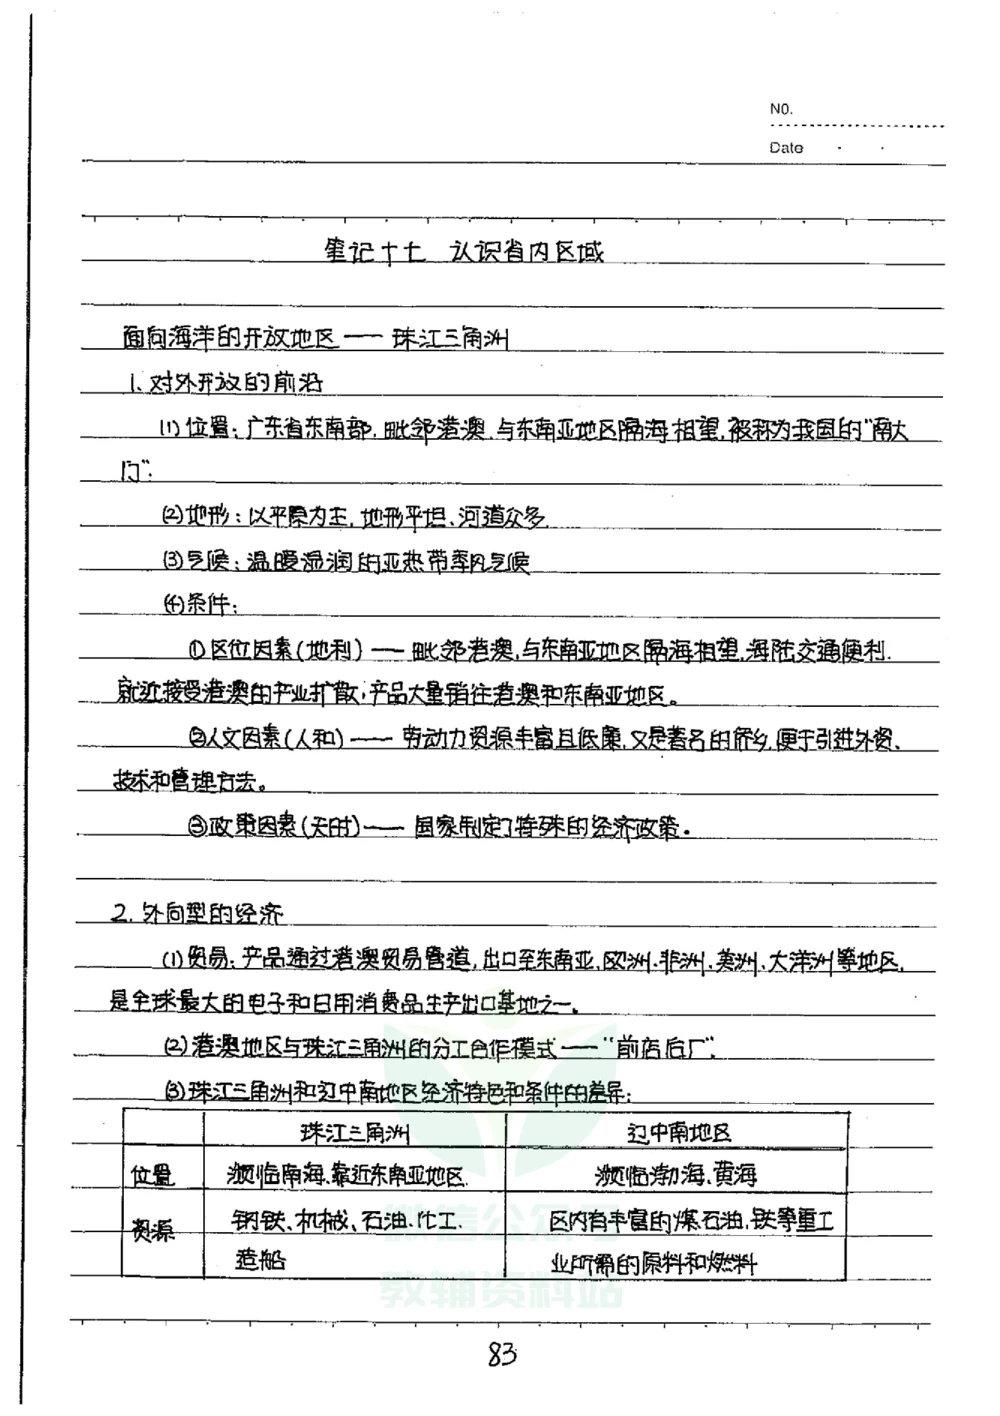 NO.
Date
笔记十七 认识省内区域
面向海洋的开放地区——珠江三角洲
1.对外开放的前沿
(1)位置:广东省东南部,毗邻港澳,与东南亚地区隔海相望,被称为我国的"南大
门".
(2)地形:以平原为主,地形平坦、河道众多
(3)气候:温暖湿润的亚热带季风气候
(4)条件:
①区位因素(地利)——毗邻港澳,与东南亚地区隔海相望,海陆交通便利.
就近接受港澳的产业扩散,产品大量销往港澳和东南亚地区。
②人文因素(人和)——劳动力资源丰富且低廉,又是著名的侨乡,便于引进外资、
技术和管理方法。
③政策因素(天时)——国家制定了特殊的经济政策。
2.外向型的经济
(1)贸易:产品通过港澳贸易管道,出口至东南亚,欧洲、非洲、美洲、大洋洲等地区,
是全球最大的电子和日用消费品生产出口基地之一。
(2)港澳地区与珠江三角洲的分工合作模式——"前店后厂".
(3)珠江三角洲和辽中南地区经济特色和条件的差异:
珠江三角洲 辽中南地区
位置 濒临南海、靠近东南亚地区 濒临渤海、黄海
资源 钢铁、机械、石油、化工、 区内有丰富的煤石油、铁等重工
造船 业所需的原料和燃料
微信公众号
教辅资料站
83